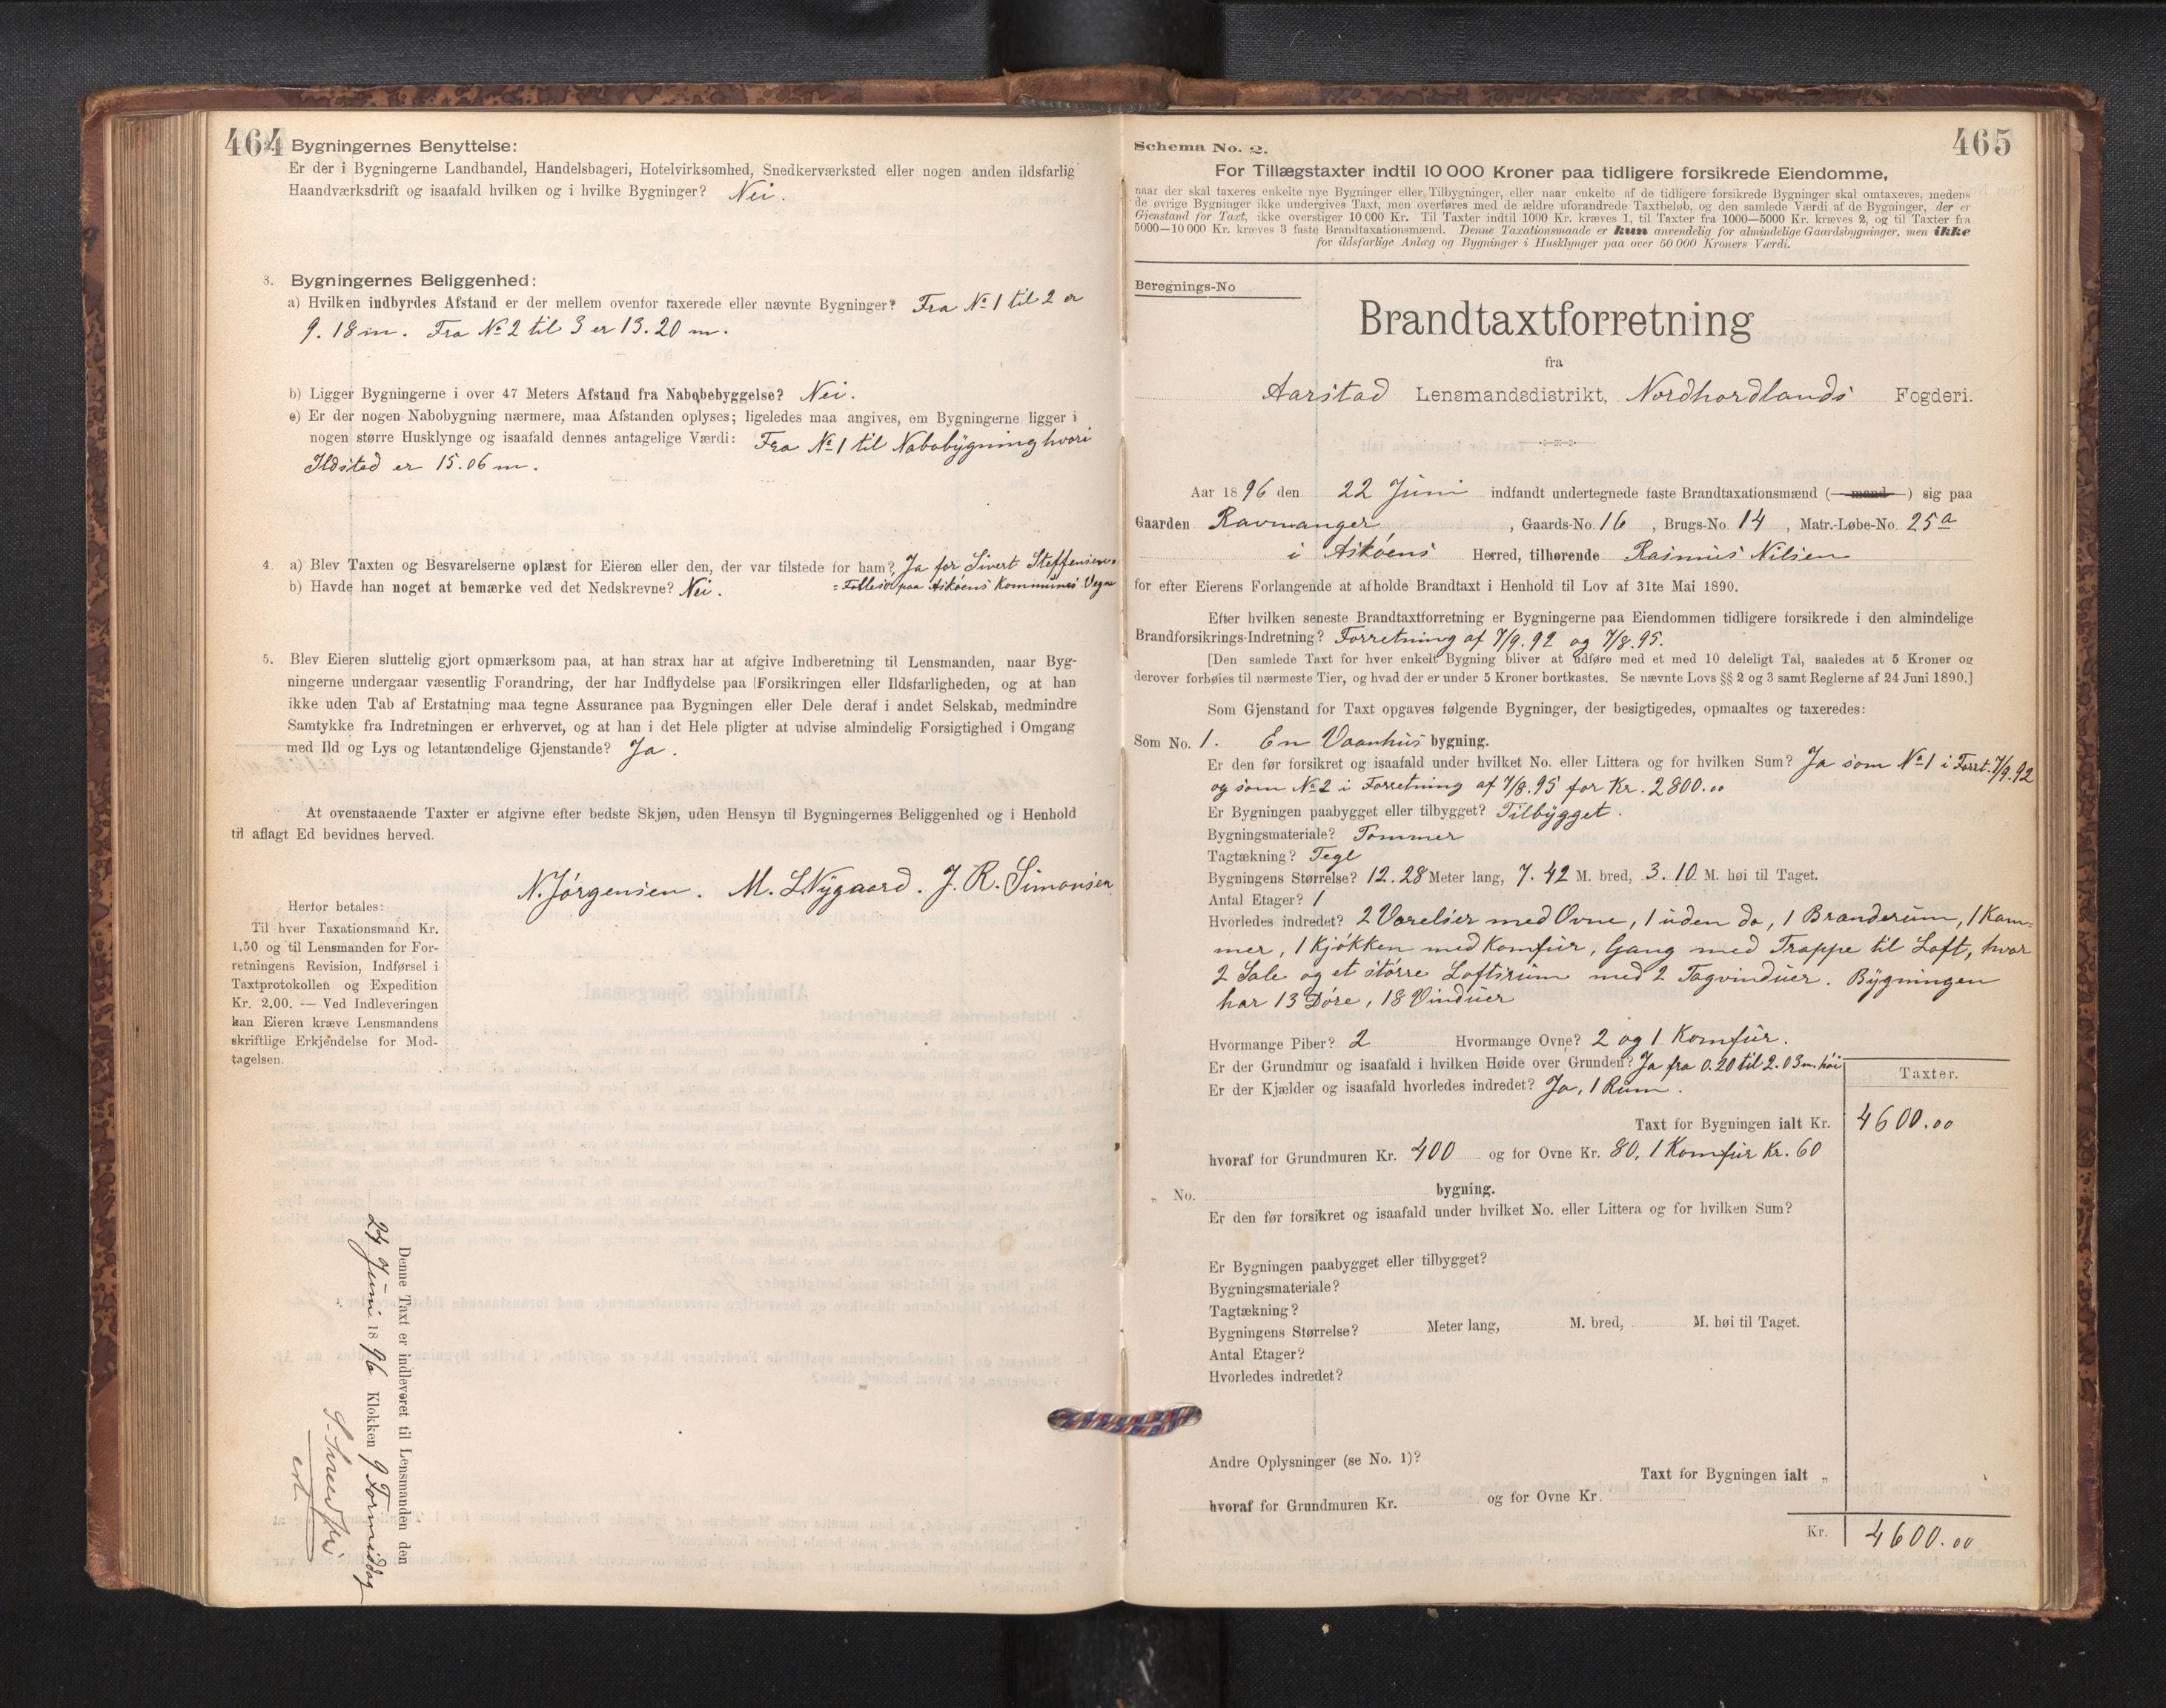 464
2. Bygningernes Benyttelse:
Er der i Bygningerne Landhandel, Handelsbageri, Hotelvirksomhed, Snedkerværksted eller nogen anden ildsfarlig
Haandværksdrift og isaafald hvilken og i hvilke Bygninger? Nei.
3. Bygningernes Beliggenhed:
a) Hvilken indbyrdes Afstand er der mellem ovenfor taxerede eller nævnte Bygninger? Fra No 1 til 2 er
9.18 m. Fra No 2 til 3 er 13.20 m.
b) Ligger Bygningerne i over 47 Meters Afstand fra Nabobebyggelse? Nei.
c) Er der nogen Nabobygning nærmere, maa Afstanden oplyses; ligeledes maa angives, om Bygningerne ligger i
nogen større Husklynge og isaafald dennes antagelige Værdi: Fra No 1 til Nabobygning hvori
Ildsted er 15.06 m.
4. a) Blev Taxten og Besvarelserne oplæst for Eieren eller den, der var tilstede for ham? Ja for Sivert Steffensen
b) Havde han noget at bemærke ved det Nedskrevne? Nei. = Follesø paa Askøens Kommunes Vegne
5. Blev Eieren sluttelig gjort opmærksom paa, at han strax har at afgive Indberetning til Lensmanden, naar Byg-
ningerne undergaar væsentlig Forandring, der har Indflydelse paa Forsikringen eller Ildsfarligheden, og at han
ikke uden Tab af Erstatning maa tegne Assurance paa Bygningen eller Dele deraf i andet Selskab, medmindre
Samtykke fra Indretningen er erhvervet, og at han i det Hele pligter at udvise almindelig Forsigtighed i Omgang
med Ild og Lys og letantændelige Gjenstande? Ja.
At ovenstaaende Taxter er afgivne efter bedste Skjøn, uden Hensyn til Bygningernes Beliggenhed og i Henhold
til aflagt Ed bevidnes herved.
N. Jørgensen. M. L Nygaard. J. R. Simonsen
Herfor betales:
Til hver Taxationsmand Kr.
1.50 og til Lensmanden for For-
retningens Revision, Indførsel i
Taxtprotokollen og Expedition
Kr. 2.00. — Ved Indleveringen
kan Eieren kræve Lensmandens
skriftlige Erkjendelse for Mod-
tagelsen.
Denne Taxt er indleveret til Lensmanden den
24 Juni 1896 Klokken 9 Formiddag
465
Schema No. 2.
For Tillægstaxter indtil 10 000 Kroner paa tidligere forsikrede Eiendomme,
naar der skal taxeres enkelte nye Bygninger eller Tilbygninger, eller naar enkelte af de tidligere forsikrede Bygninger skal omtaxeres, medens
de øvrige Bygninger ikke undergives Taxt, men overføres med de ældre uforandrede Taxtbeløb, og den samlede Værdi af de Bygninger, der er
Gjenstand for Taxt, ikke overstiger 10 000 Kr. Til Taxter indtil 1000 Kr. kræves 1, til Taxter fra 1000—5000 Kr. kræves 2, og til Taxter fra
5000—10 000 Kr. kræves 3 faste Brandtaxationsmænd. Denne Taxationsmaade er kun anvendelig for almindelige Gaardsbygninger, men ikke
for ildsfarlige Anlæg og Bygninger i Husklynger paa over 50 000 Kroners Værdi.
Beregnings-No
Brandtaxtforretning
fra
Aarstad Lensmandsdistrikt, Nordhordlands Fogderi.
Aar 1896 den 22 Juni indfandt undertegnede faste Brandtaxationsmænd (mand) sig paa
Gaarden Ravnanger, Gaards-No. 16, Brugs-No. 14, Matr.-Løbe-No. 25a
i Askøens Herred, tilhørende Rasmus Nilsen
for efter Eierens Forlangende at afholde Brandtaxt i Henhold til Lov af 31te Mai 1890.
Efter hvilken seneste Brandtaxtforretning er Bygningerne paa Eiendommen tidligere forsikrede i den almindelige
Brandforsikrings-Indretning? Forretning af 7/9.92 og 7/8.95.
[Den samlede Taxt for hver enkelt Bygning bliver at udføre med et med 10 deleligt Tal, saaledes at 5 Kroner og
derover forhøies til nærmeste Tier, og hvad der er under 5 Kroner bortkastes. Se nævnte Lovs §§ 2 og 3 samt Reglerne af 24 Juni 1890.]
Som Gjenstand for Taxt opgaves følgende Bygninger, der besigtigedes, opmaaltes og taxeredes:
Som No. 1. En Vaanhus bygning.
Er den før forsikret og isaafald under hvilket No. eller Littera og for hvilken Sum? Ja som No 1 i Forret. 7/9.92
og som No 2 i Forretning af 7/8.95 for Kr. 2800.00
Er Bygningen paabygget eller tilbygget? Tilbygget.
Bygningsmateriale? Tømmer
Tagtækning? Tegl
Bygningens Størrelse? 12.28 Meter lang, 7.42 M. bred, 3.10 M. høi til Taget.
Antal Etager? 1
Hvorledes indredet? 2 Værelser med Ovne, 1 uden do, 1 Branderum, 1 Kam-
mer, 1 Kjøkken med Komfur, Gang med Trappe til Loft, hvor
2 Sale og et større Loftsrum med 2 Tagvinduer. Bygningen
har 13 Døre, 18 Vinduer
Hvormange Piber? 2 Hvormange Ovne? 2 og 1 Komfur.
Er der Grundmur og isaafald i hvilken Høide over Grunden? Ja fra 0.20 til 2.03 m. høi
Er der Kjælder og isaafald hvorledes indredet? Ja, 1 Rum.
Taxter.
Taxt for Bygningen ialt Kr. 4600.00
hvoraf for Grundmuren Kr. 400 og for Ovne Kr. 80, 1 Komfur Kr. 60
„ No. bygning.
Er den før forsikret og isaafald under hvilket No. eller Littera og for hvilken Sum?
Er Bygningen paabygget eller tilbygget?
Bygningsmateriale?
Tagtækning?
Bygningens Størrelse? Meter lang, M. bred, M. høi til Taget.
Antal Etager?
Hvorledes indredet?
Andre Oplysninger (se No. 1)?
Taxt for Bygningen ialt „
hvoraf for Grundmuren Kr. og for Ovne Kr.
Kr. 4600.00